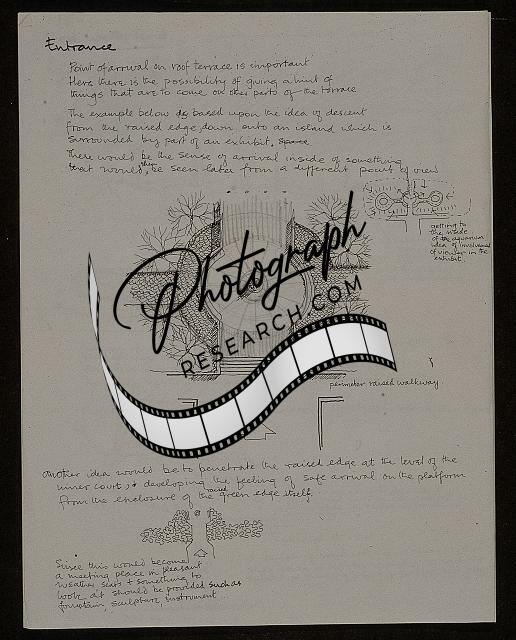 Entrance
Point of arrival on roof terrace is important
Here there is the possibility of giving a hint of
things that are to come on other parts of the terrace
The example below is based upon the idea of descent
from the raised edge down onto an island which is
surrounded by part of an exhibit. space
There would be the sense of arrival inside of something
that would then be seen later from a different point of view
getting to
the inside
of the aquarium
idea of involvement
of viewer in the
exhibit.
Photograph
RESEARCH.COM
perimeter raised walkway
Another idea would be to penetrate the raised edge at the level of the
inner court, developing the feeling of safe arrival on the platform
from the enclosure of the raised green edge itself.
Since this would become
a meeting place in pleasant
weather seats + something to
look at should be provided such as
fountain, sculpture, instrument